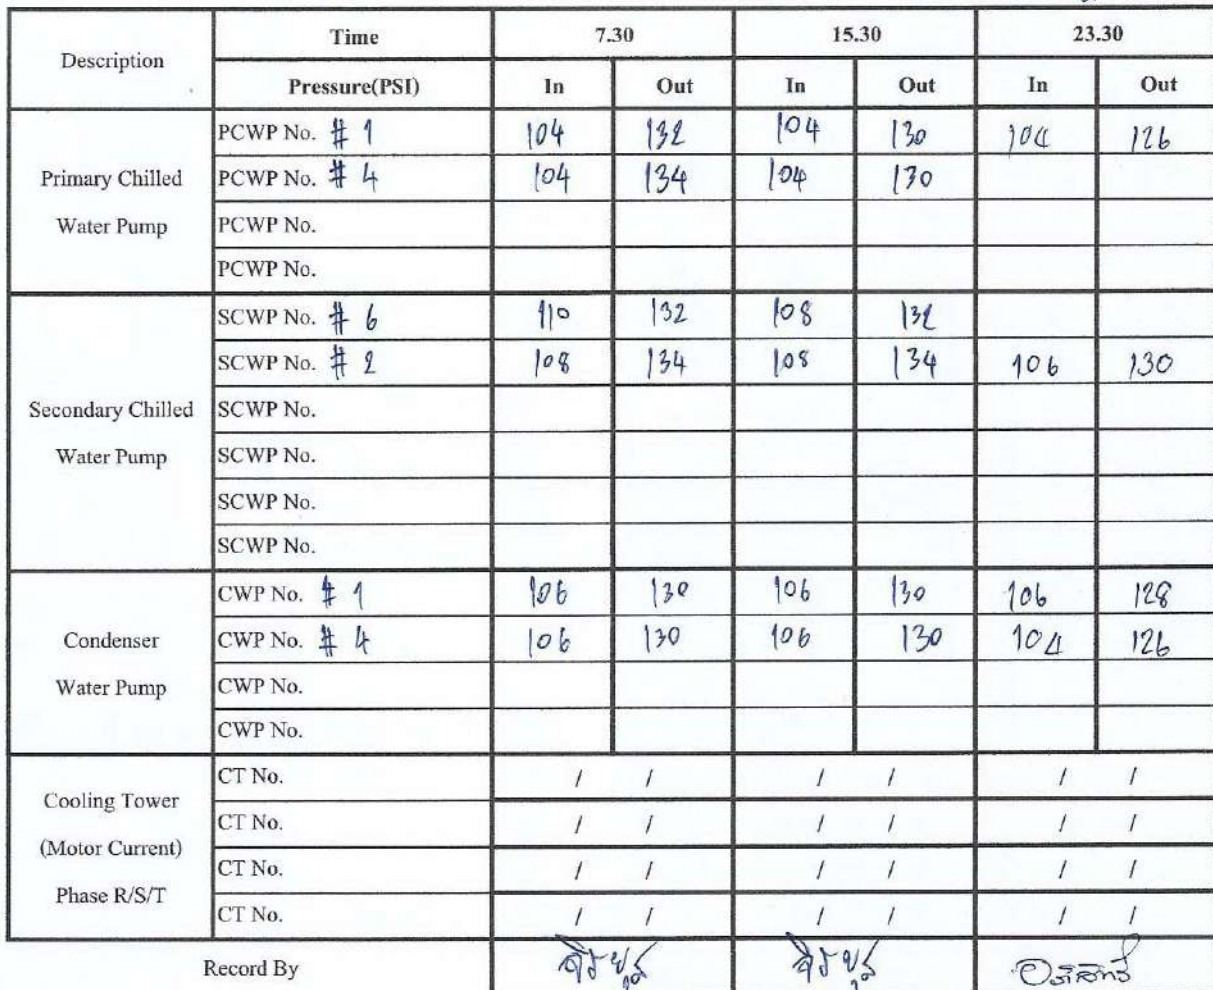 Description Time 7.30 15.30 23.30
Pressure(PSI) In Out In Out In Out
Primary Chilled Water Pump
PCWP No. # 1 104 132 104 130 104 126
PCWP No. # 4 104 134 104 130
PCWP No.
PCWP No.
Secondary Chilled Water Pump
SCWP No. # 6 110 132 108 132
SCWP No. # 2 108 134 108 134 106 130
SCWP No.
SCWP No.
SCWP No.
SCWP No.
Condenser Water Pump
CWP No. # 1 106 130 106 130 106 128
CWP No. # 4 106 130 106 130 104 126
CWP No.
CWP No.
Cooling Tower (Motor Current) Phase R/S/T
CT No. / / / / / /
CT No. / / / / / /
CT No. / / / / / /
CT No. / / / / / /
Record By